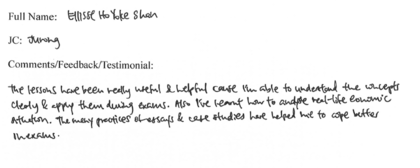 Full Name: Ellisse Ho Yoke Shan
JC: Jurong
Comments/Feedback/Testimonial:
The lessons have been really useful & helpful cause I'm able to understand the concepts
clearly & apply them during exams. Also I've learnt how to analyse real-life economic
situation. The many practices of essays & case studies have helped me to cope better
in exams.